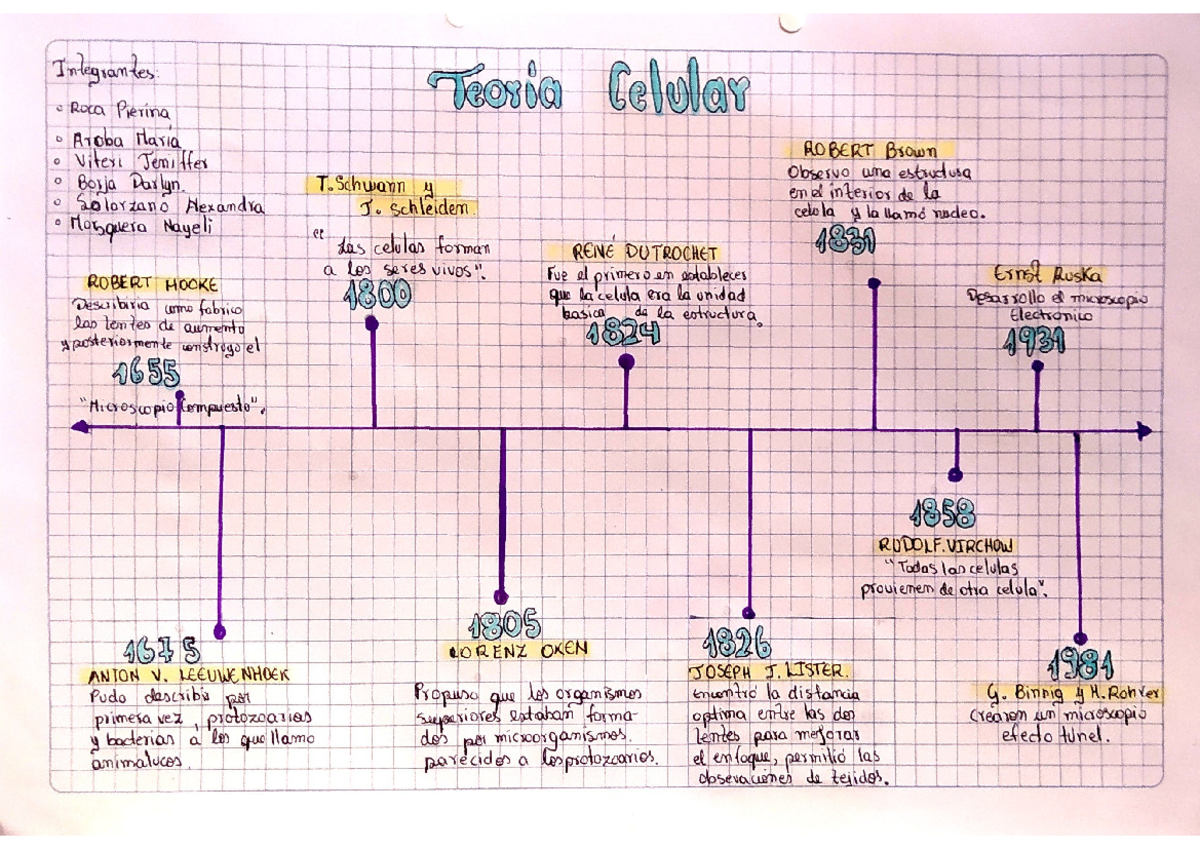 Teoria Celular
Integrantes:
Roca Pierina
Aroba Maria
Viteri Jeniffer
Borja Darlyn.
Solorzano Alexandra
Mosquera Nayeli
ROBERT HOOKE
Describiria como fabrico
las lentes de aumento
y posteriormente construyo el
1655
"Microscopio Compuesto".
T. Schwann y
J. Schleidem.
" Las celulas forman
a los seres vivos".
1800
RENÉ DUTROCHET
Fue el primero en establecer
que la celula era la unidad
basica de la estructura.
1824
ROBERT Brown
Observo una estructura
en el interior de la
celola y la llamó nucleo.
1831
Ernst Ruska
Desarrollo el microscopio
Electronico
1931
1675
ANTON V. LEEUWENHOEK
Pudo describir por
primera vez, protozoarios
y bacterias a los que llamo
animalucos.
1805
LORENZ OKEN
Propuso que los organismos
superiores estaban forma-
dos por microorganismos.
parecidos a los protozoarios.
1826
JOSEPH J. LISTER.
Encontró la distancia
optima entre las dos
lentes para mejorar
el enfoque, permitió las
observaciones de tejidos.
1858
RUDOLF. VIRCHOW
"Todas las celulas
provienem de otra celula".
1981
G. Binnig y H. Rohrer
Crearon un microscopio
efecto tunel.